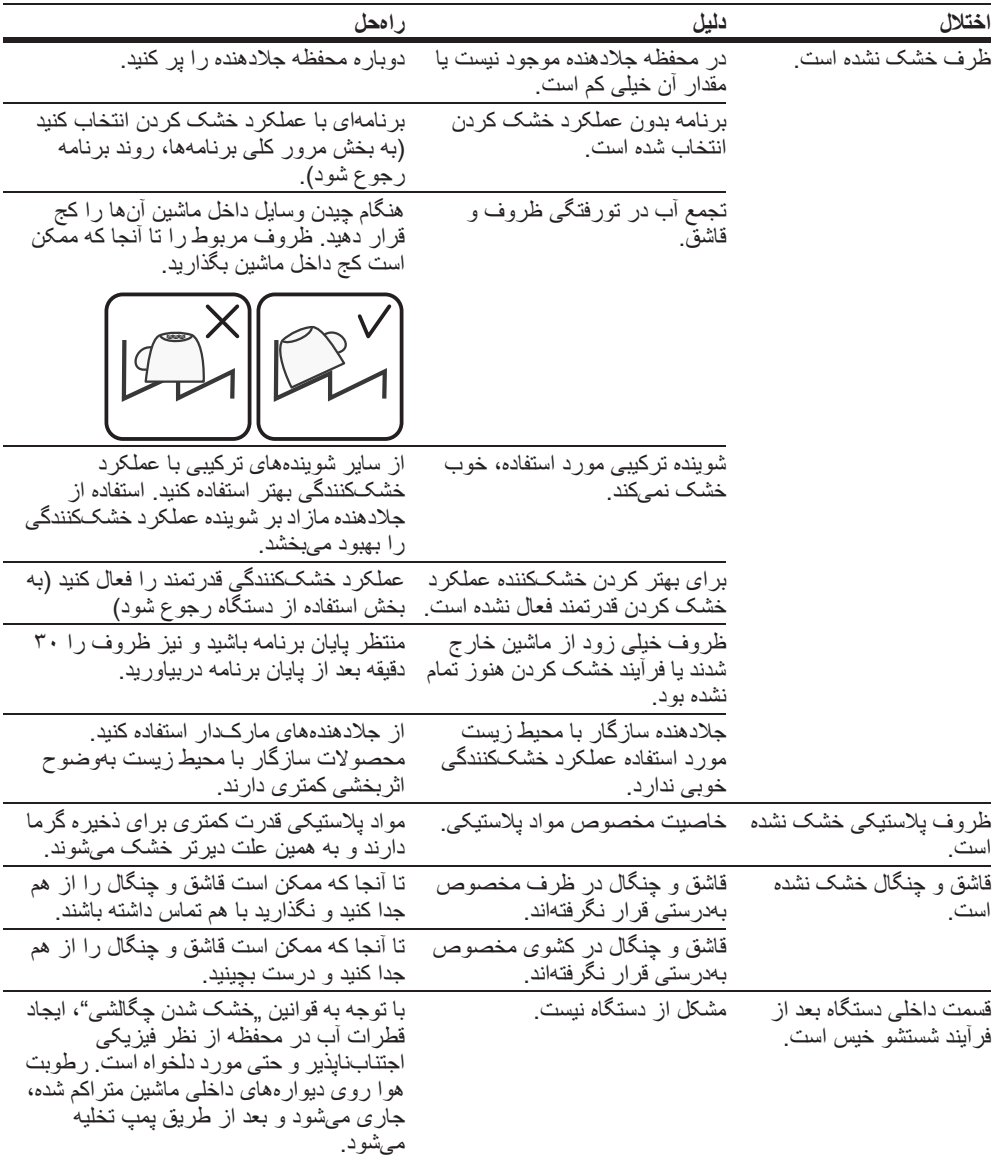 اختلال
دلیل
راه‌حل
ظرف خشک نشده است.
در محفظه جلادهنده موجود نیست یا
مقدار آن خیلی کم است.
دوباره محفظه جلادهنده را پر کنید.
برنامه بدون عملکرد خشک کردن
انتخاب شده است.
برنامه‌ای با عملکرد خشک کردن انتخاب کنید
(به بخش مرور کلی برنامه‌ها، روند برنامه
رجوع شود).
تجمع آب در تورفتگی ظروف و
قاشق.
هنگام چیدن وسایل داخل ماشین آن‌ها را کج
قرار دهید. ظروف مربوط را تا آنجا که ممکن
است کج داخل ماشین بگذارید.
شوینده ترکیبی مورد استفاده، خوب
خشک نمی‌کند.
از سایر شوینده‌های ترکیبی با عملکرد
خشک‌کنندگی بهتر استفاده کنید. استفاده از
جلادهنده مازاد بر شوینده عملکرد خشک‌کنندگی
را بهبود می‌بخشد.
برای بهتر کردن خشک‌کننده عملکرد
خشک کردن قدرتمند فعال نشده است.
عملکرد خشک‌کنندگی قدرتمند را فعال کنید (به
بخش استفاده از دستگاه رجوع شود)
ظروف خیلی زود از ماشین خارج
شدند یا فرآیند خشک کردن هنوز تمام
نشده بود.
منتظر پایان برنامه باشید و نیز ظروف را ۳۰
دقیقه بعد از پایان برنامه دربیاورید.
جلادهنده سازگار با محیط زیست
مورد استفاده عملکرد خشک‌کنندگی
خوبی ندارد.
از جلادهنده‌های مارک‌دار استفاده کنید.
محصولات سازگار با محیط زیست به‌وضوح
اثربخشی کمتری دارند.
ظروف پلاستیکی خشک نشده
است.
خاصیت مخصوص مواد پلاستیکی.
مواد پلاستیکی قدرت کمتری برای ذخیره گرما
دارند و به همین علت دیرتر خشک می‌شوند.
قاشق و چنگال خشک نشده
است.
قاشق و چنگال در ظرف مخصوص
به‌درستی قرار نگرفته‌اند.
تا آنجا که ممکن است قاشق و چنگال را از هم
جدا کنید و نگذارید با هم تماس داشته باشند.
قاشق و چنگال در کشوی مخصوص
به‌درستی قرار نگرفته‌اند.
تا آنجا که ممکن است قاشق و چنگال را از هم
جدا کنید و درست بچینید.
قسمت داخلی دستگاه بعد از
فرآیند شستشو خیس است.
مشکل از دستگاه نیست.
با توجه به قوانین „خشک شدن چگالشی“، ایجاد
قطرات آب در محفظه از نظر فیزیکی
اجتناب‌ناپذیر و حتی مورد دلخواه است. رطوبت
هوا روی دیواره‌های داخلی ماشین متراکم شده،
جاری می‌شود و بعد از طریق پمپ تخلیه
می‌شود.